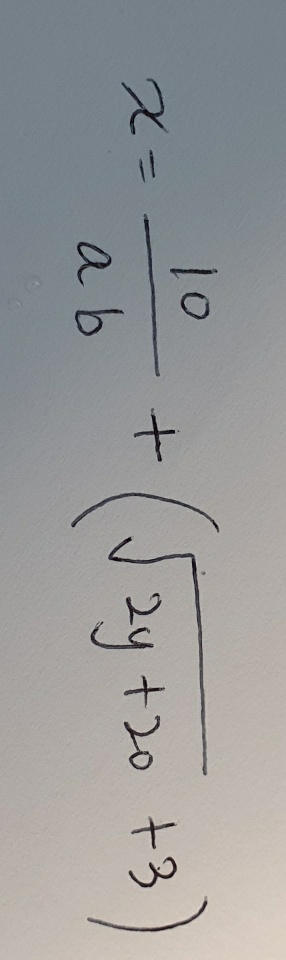 x = 10/(ab) + (√(2y+20) + 3)